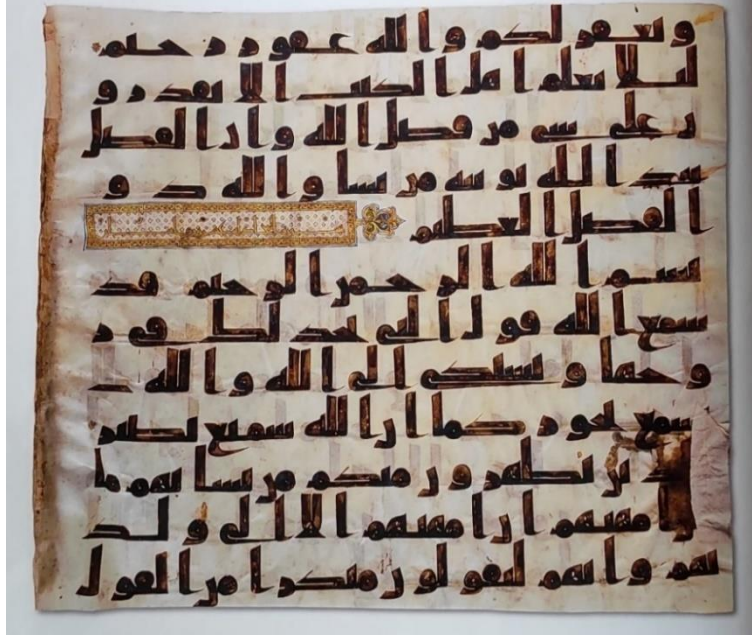 ويغفر لكم والله غفور رحيم
لئلا يعلم اهل الكتب الا يقدرو
ن على شي من فضل الله وان الفضل
بيد الله يوتيه من يشا والله ذو
الفضل العظيم
بسم الله الرحمن الرحيم قد
سمع الله قول التي تجدلك في ز
وجها وتشتكي الى الله والله يـ
سمع تحوركما ان الله سميع بصير
الذين يظهرون منكم من نسائهم ما
هن امهتهم ان امهتهم الا الي ولد
نهم وانهم ليقولون منكرا من القول